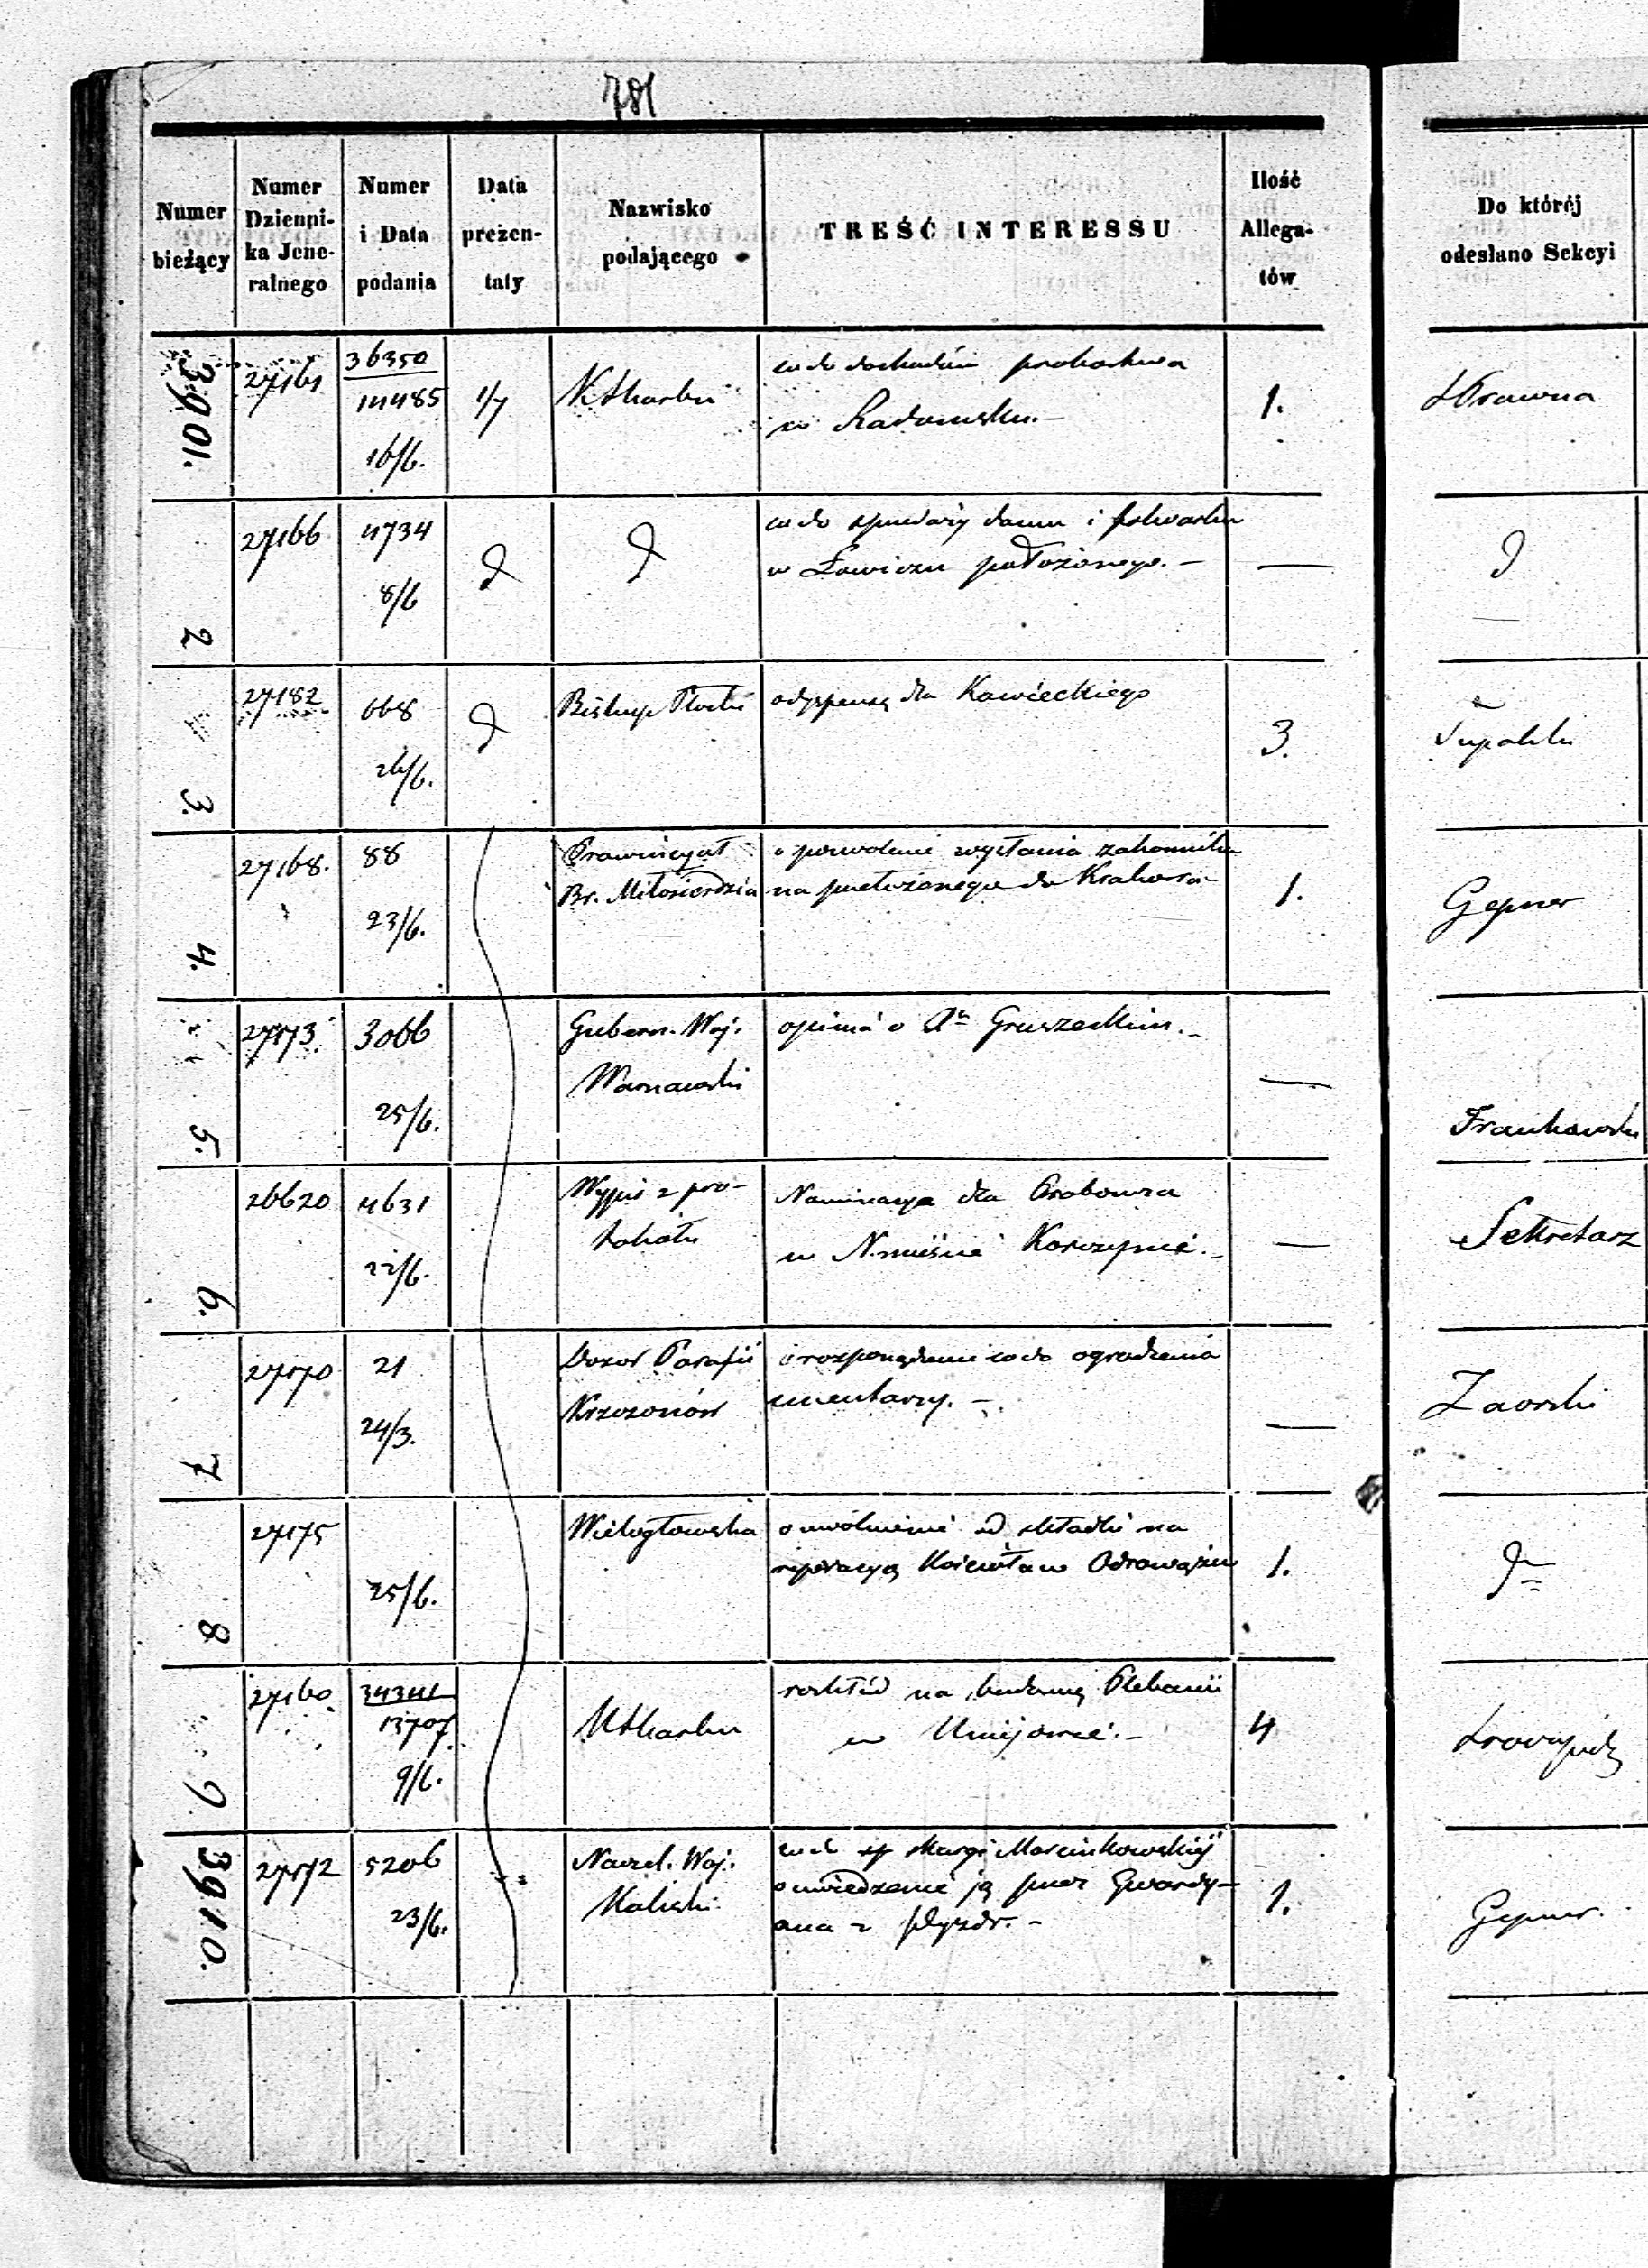 781
Numer bieżący
Numer Dzienni-ka Jene-ralnego
Numer i Data podania
Data prezen-taty
Nazwisko podającego
TREŚĆ INTERESSU
Ilość Allega-tów
Do któréj odesłano Sekcyi
3901.
27161
36350
14485
16/6.
1/7
K Skarbu
co do dochodów probostwa
w Radomsku.
1.
Prawna
2
27166
4734
8/6
d
d
co do sprzedaży domu i folwarku
w Łowiczu położonego. –
—
d
3.
27182
668
26/6.
d
Biskup Płocki
o dyspensę dla Kawieckiego
3.
4.
27168.
88
23/6.
Prowincyał
Br. Miłosierdzia
o pozwolenie wysłania zakonnika
na przełożonego do Krakowa
1.
Gepner
5.
27173
3066
25/6.
Gubern. Woj.
Warszawski
opinia o Gruszeckim. –
—
Frankowski
6.
26620
4631
22/6.
Wypis z pro-
tokołu
Nominacya dla Proboszcza
w N. mieście Korczynie. –
—
Sekretarz
7
27170
21
24/3.
Dozor Parafii
Krzczonów
o rozporządzenie co do ogrodzenia
cmentarzy. –
—
Zaorski
8
27175
25/6.
Wielogłowska
o uwolnienie od składki na
reperacyą Kościoła w Odrowążu
1.
d
9
27160
34341
13707
9/6.
K Skarbu
rozkład na budowę Plebanii
w Uniejowie. –
4
3910.
27172
5206
23/6.
Naczel. Woj.
Kaliski
co do skargi Marcinkowskiéj
o uwiedzenie ją przez Gwardy-
ana z Pyzdr. –
1.
Gepner.